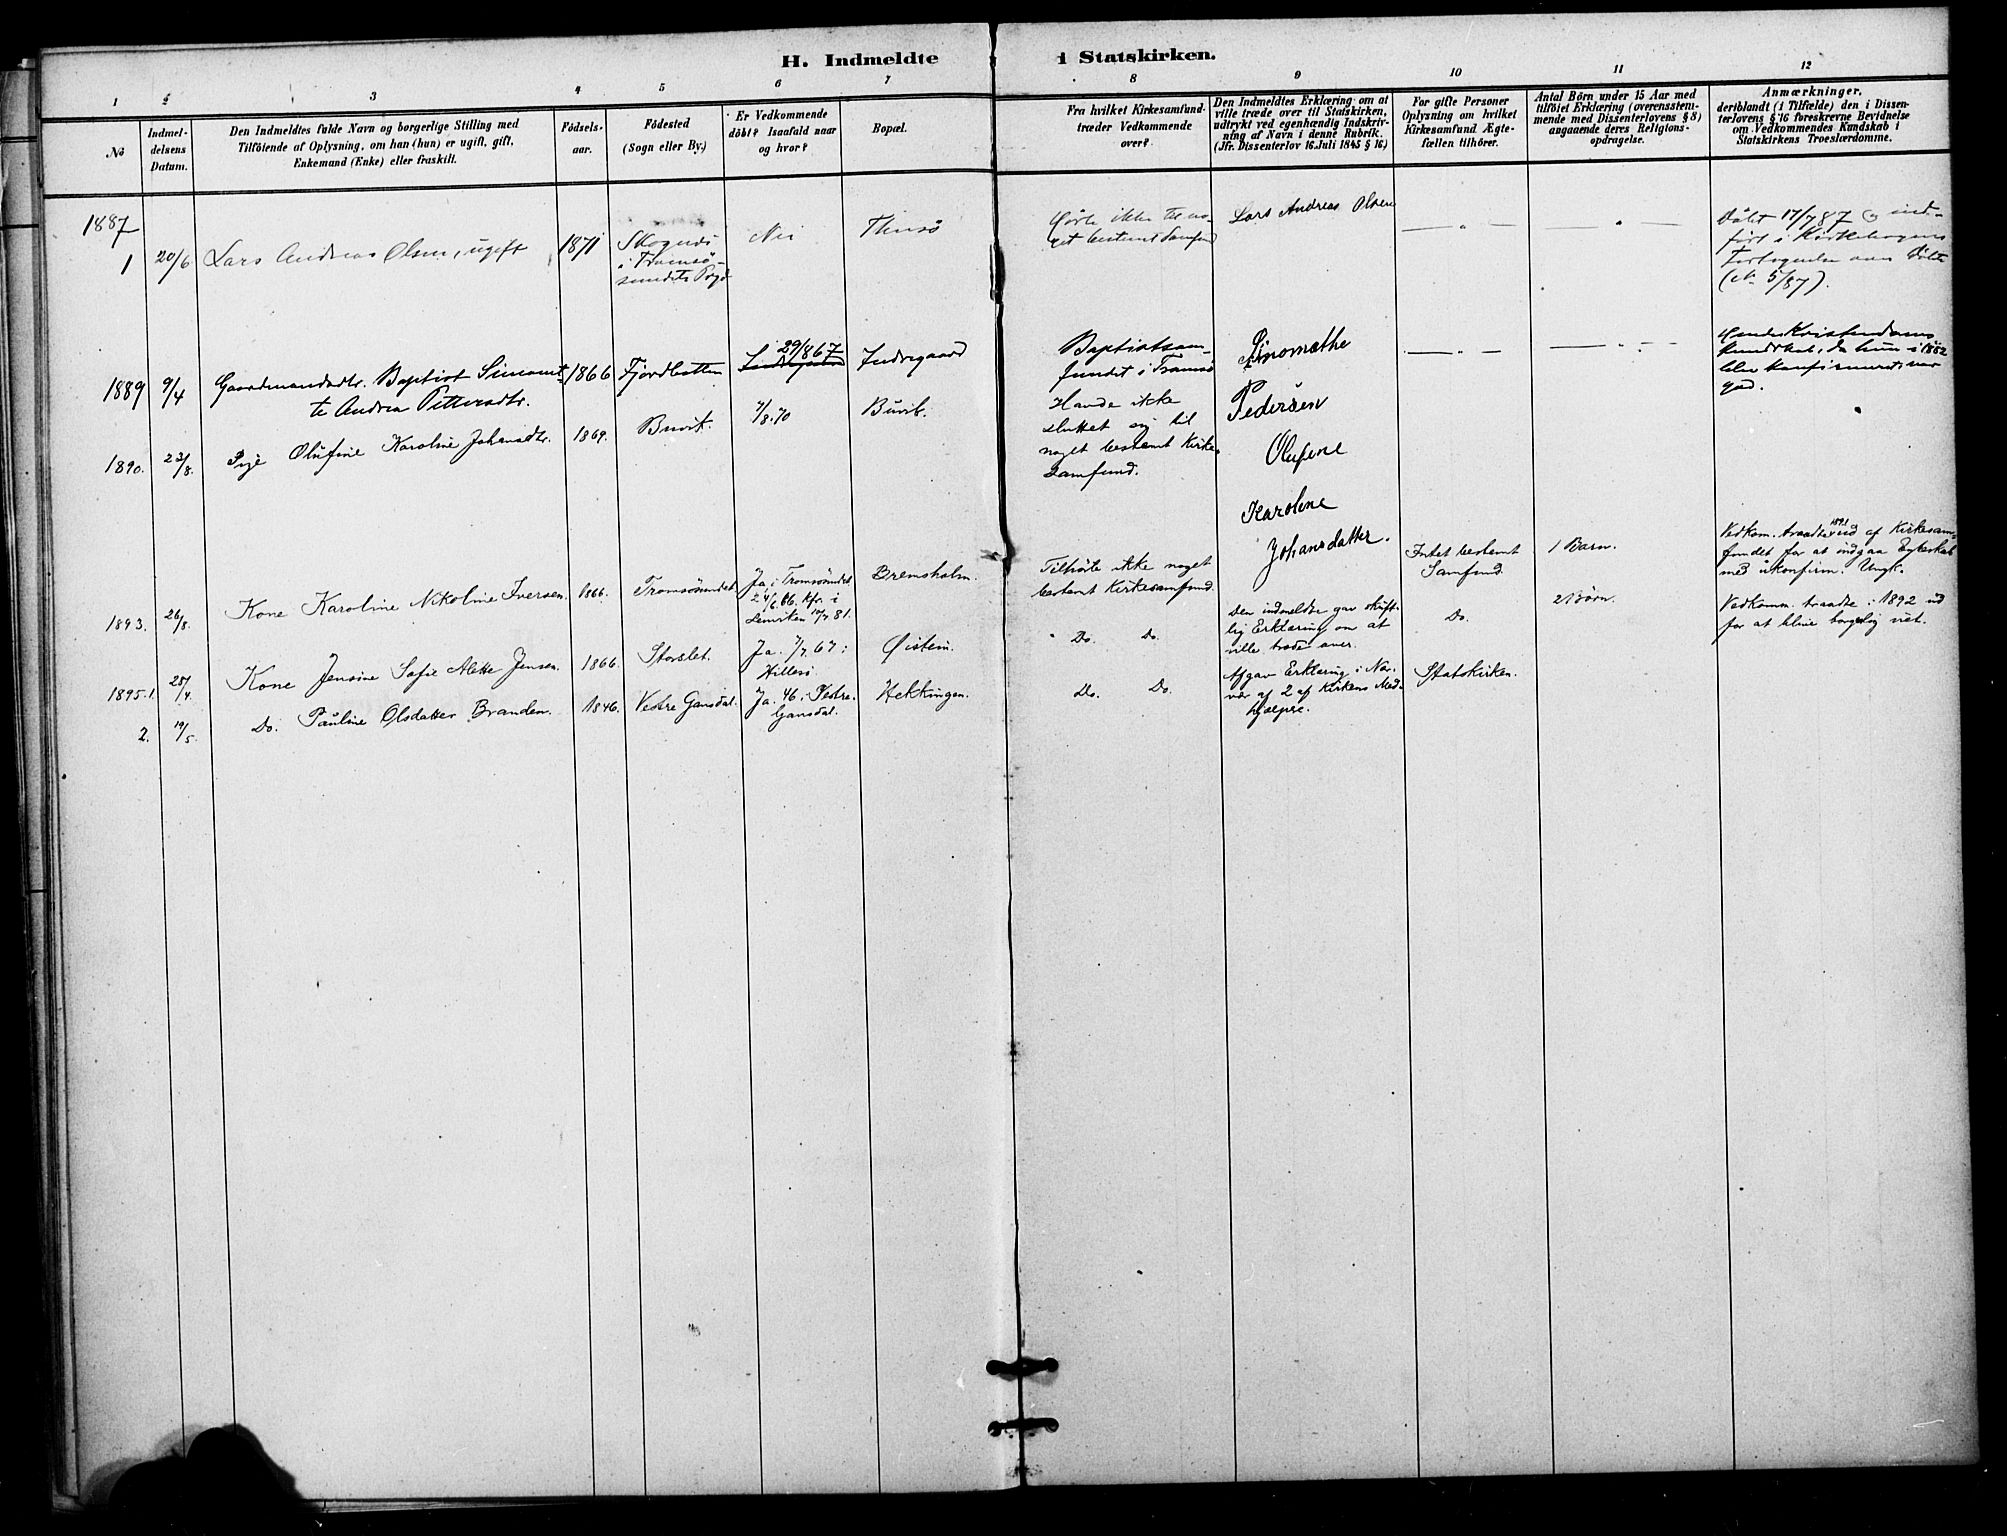 H. Indmeldte i Statskirken.
1 2 3 4 5 6 7 8 9 10 11 12
No
Indmel-
delsens
Datum.
Den Indmeldtes fulde Navn og borgerlige Stilling med
Tilföiende af Oplysning, om han (hun) er ugift, gift,
Enkemand (Enke) eller fraskilt.
Födsels-
aar.
Födested
(Sogn eller By.)
Er Vedkommende
döbt? Isaafald naar
og hvor?
Bopæl.
Fra hvilket Kirkesamfund
træder Vedkommende
over?
Den Indmeldtes Erklæring om at
ville træde over til Statskirken,
udtrykt ved egenhændig Indskriv-
ning af Navn i denne Rubrik.
(Jfr. Dissenterlov 16. Juli 1845 § 16)
For gifte Personer
Oplysning om hvilket
Kirkesamfund Ægte-
fællen tilhörer.
Antal Börn under 15 Aar med
tilföiet Erklæring (overensstem-
mende med Dissenterlovens § 8)
angaaende deres Religions-
opdragelse.
Anmærkninger,
deriblandt (i Tilfælde) den i Dissen-
terlovens § 16 foreskrevne Bevidnelse
om Vedkommendes Kundskab i
Statskirkens Troeslærdomme.
1887
1
20/6
Lars Andreas Olsen, ugift
1871
Skognes
i Tromsø-
sundets Prgd
Nei
Tussø
ikke til no-
get bestemt Samfund
Lars Andreas Olsen
Døbt 17/7 87 og ind-
ført i Kirkebogens
Fortegnelse over Døbte
(No 5/87).
1889
9/4
Gaardmandsdtr. Baptist
Andrea Pettersdtr.
1866
Fjordbotten
29/867
Indregaard
Baptistsam-
fundet i Tromsø
Pedersen
Kristendoms
kundskab, da hun i 1882
blev konfirmeret, var
god.
1890.
23/8.
Pige Olufine Karoline Johansdtr.
1869.
Buvik.
7/8.70
Buvik.
Havde ikke
sluttet sig til
noget bestemt Kirke-
samfund.
Olufine
Karoline
Johansdatter.
1893.
26/8.
Kone Karoline Nikoline Iversen.
1866.
Tromsøsundet
Ja, i Tromsøsundet
24/6.66. Kfr. i
Lenviken 10/7 81.
Bremsholm.
Tilhørte ikke noget
bestemt Kirkesamfund.
Intet bestemt
Samfund.
1 Barn.
Vedkom. traadte 1891 ud af Kirkesam-
fundet for at indgaa Egteskab
med ukonfirm. Ungk.
1895. 1.
25/4.
Kone Jensine Sofie Alette Jensen.
1866.
Storslet.
Ja. 7/7.67 i
Hillesø
Øistein.
Do. Do.
Den indmeldte gav skrift-
lig Erklæring om at
ville træde over.
Do.
2 Børn.
Vedkomm. traadte i 1892 ud
for at blive borgerlig viet.
2.
19/5.
Do. Pauline Olsdatter Branden.
1846.
Vestre Gausdal.
Ja. 46 i Vestre
Gausdal.
Hekkingen.
Do. Do.
Afgav Erklæring i Nær-
vær af 2 af Kirkens Med-
hjælpere.
Statskirken.